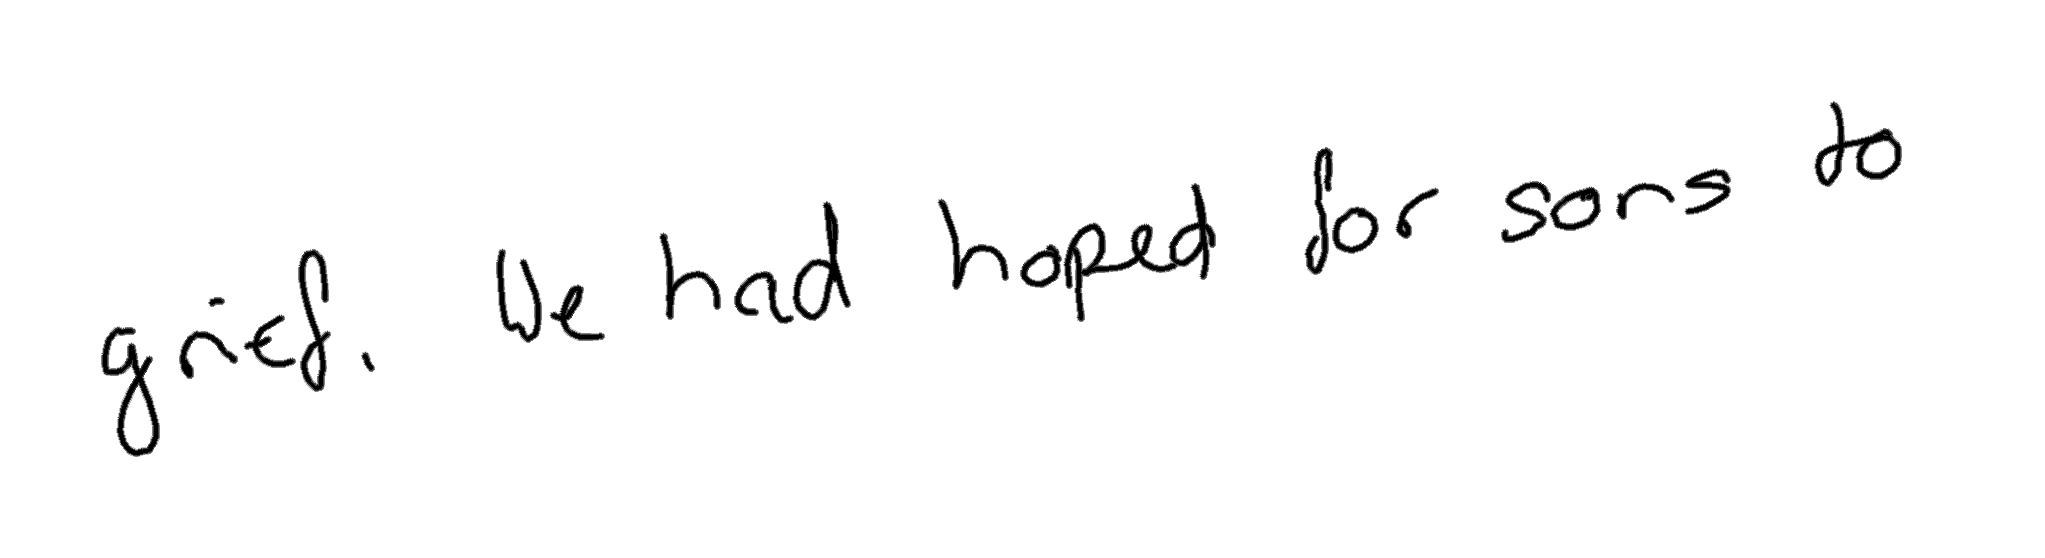 grief. We had hoped for sons to